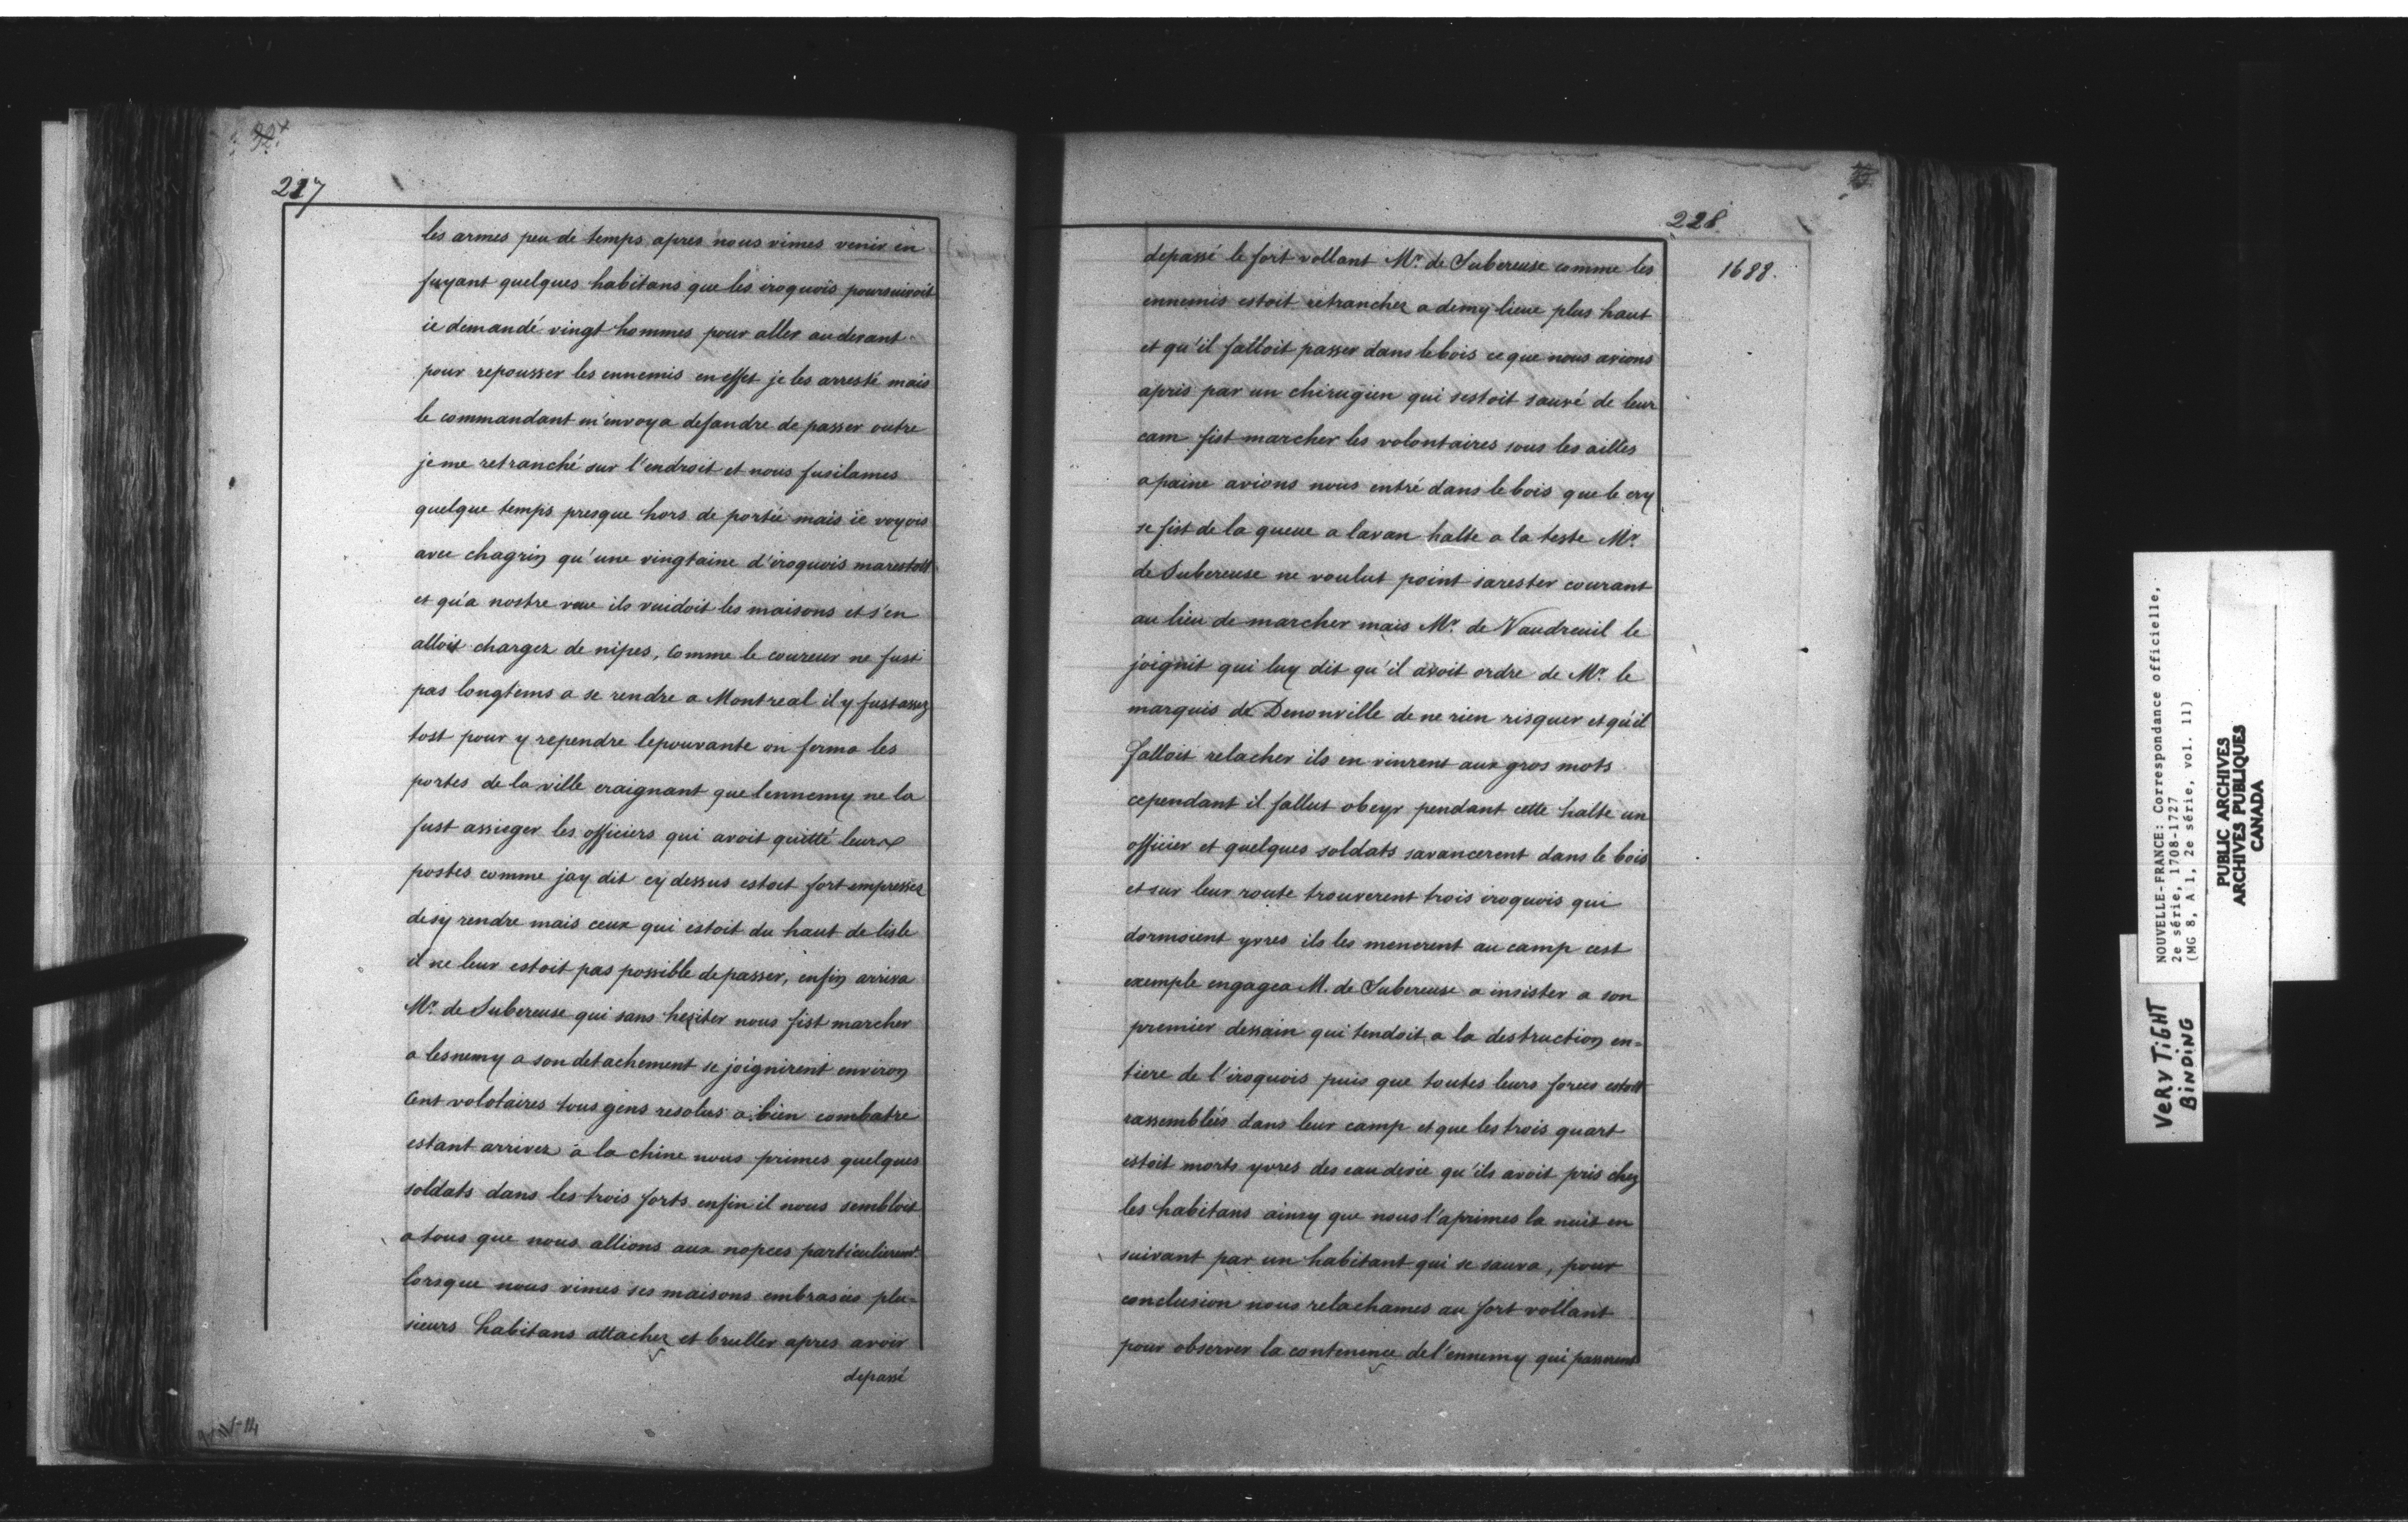 227
les armes peu de temps apres nous vimes venir en
fuyant quelques habitans que les iroquois poursuivoit
ie demandé vingt hommes pour aller au devant
pour repousser les ennemis en effet je les arresté mais
le commandant m'envoya defandre de passer outre
je me retranché sur l'endroit et nous fusilames
quelque temps presque hors de portée mais ie voyois
avec chagrin qu'une vingtaine d'iroquois marestoit
et qu'a nostre veue ils vuidoit les maisons et s'en
alloit chargez de nipes, Comme le coureur ne fust
pas longtems a se rendre a Montreal il y fust assez
tost pour y rependre lepouvante on ferma les
portes de la ville craignant que lennemy ne la
fust assieger les officiers qui avoit quitté leurs
postes comme jay dit cy dessus estoit fort empressez
de sy rendre mais ceux qui estoit du haut de lisle
il ne leur estoit pas possible de passer, enfin arriva
Mr. de Subereuse qui sans hesiter nous fist marcher
a lesnemy a son detachement se joignirent environ
Cent volotaires tous gens resolus a bien combatre
estant arrivez à la chine nous primes quelques
soldats dans les trois forts enfin il nous sembloit
a tous que nous allions aux nopces particulieremt.
lorsque nous vimes ses maisons embrasées plu=
sieurs habitans attachez et bruller apres avoir
depassé
228
1688.
depassé le fort rollant Mr. de Subereuse comme les
ennemis estoit retranchez a demy lieue plus haut
et qu'il falloit passer dans le bois ce que nous avions
apris par un chirugien qui sestoit sauvé de leur
cam fist marcher les volontaires sous les ailles
a paine avions nous entré dans le bois que le cry
se fist de la queue a lavan halte a la teste Mr.
de Subereuse ne voulut point sarester courant
au lieu de marcher mais Mr. de Vaudreuil le
joignit qui luy dit qu'il avoit ordre de Mr. le
marquis de Denonville de ne rien risquer et qu'il
falloit relacher ils en vinrent aux gros mots
cependant il fallut obeyr pendant cette halte un
officier et quelques soldats savancerent dans le bois
et sur leur route trouverent trois iroquois qui
dormoient yvres ils les menerent au camp cest
exemple engagea M. de Subereuse a insister a son
premier dessain qui tendoit a la destruction en=
tiere de l'iroquois puis que toutes leurs forces estoit
rassemblées dans leur camp et que les trois quart
estoit morts yvres des eau devie qu'ils avoit pris chez
les habitans ainsy que nous l'aprimes la nuit en
suivant par un habitant qui se sauva, pour
conclusion nous relachames au fort rollant
pour observer la continence de l'ennemy qui passerent
NOUVELLE-FRANCE: Correspondance officielle,
2e série, 1708-1727
(MG 8, A 1, 2e série, vol. 11)
PUBLIC ARCHIVES
ARCHIVES PUBLIQUES
CANADA
VERY TIGHT
BINDING